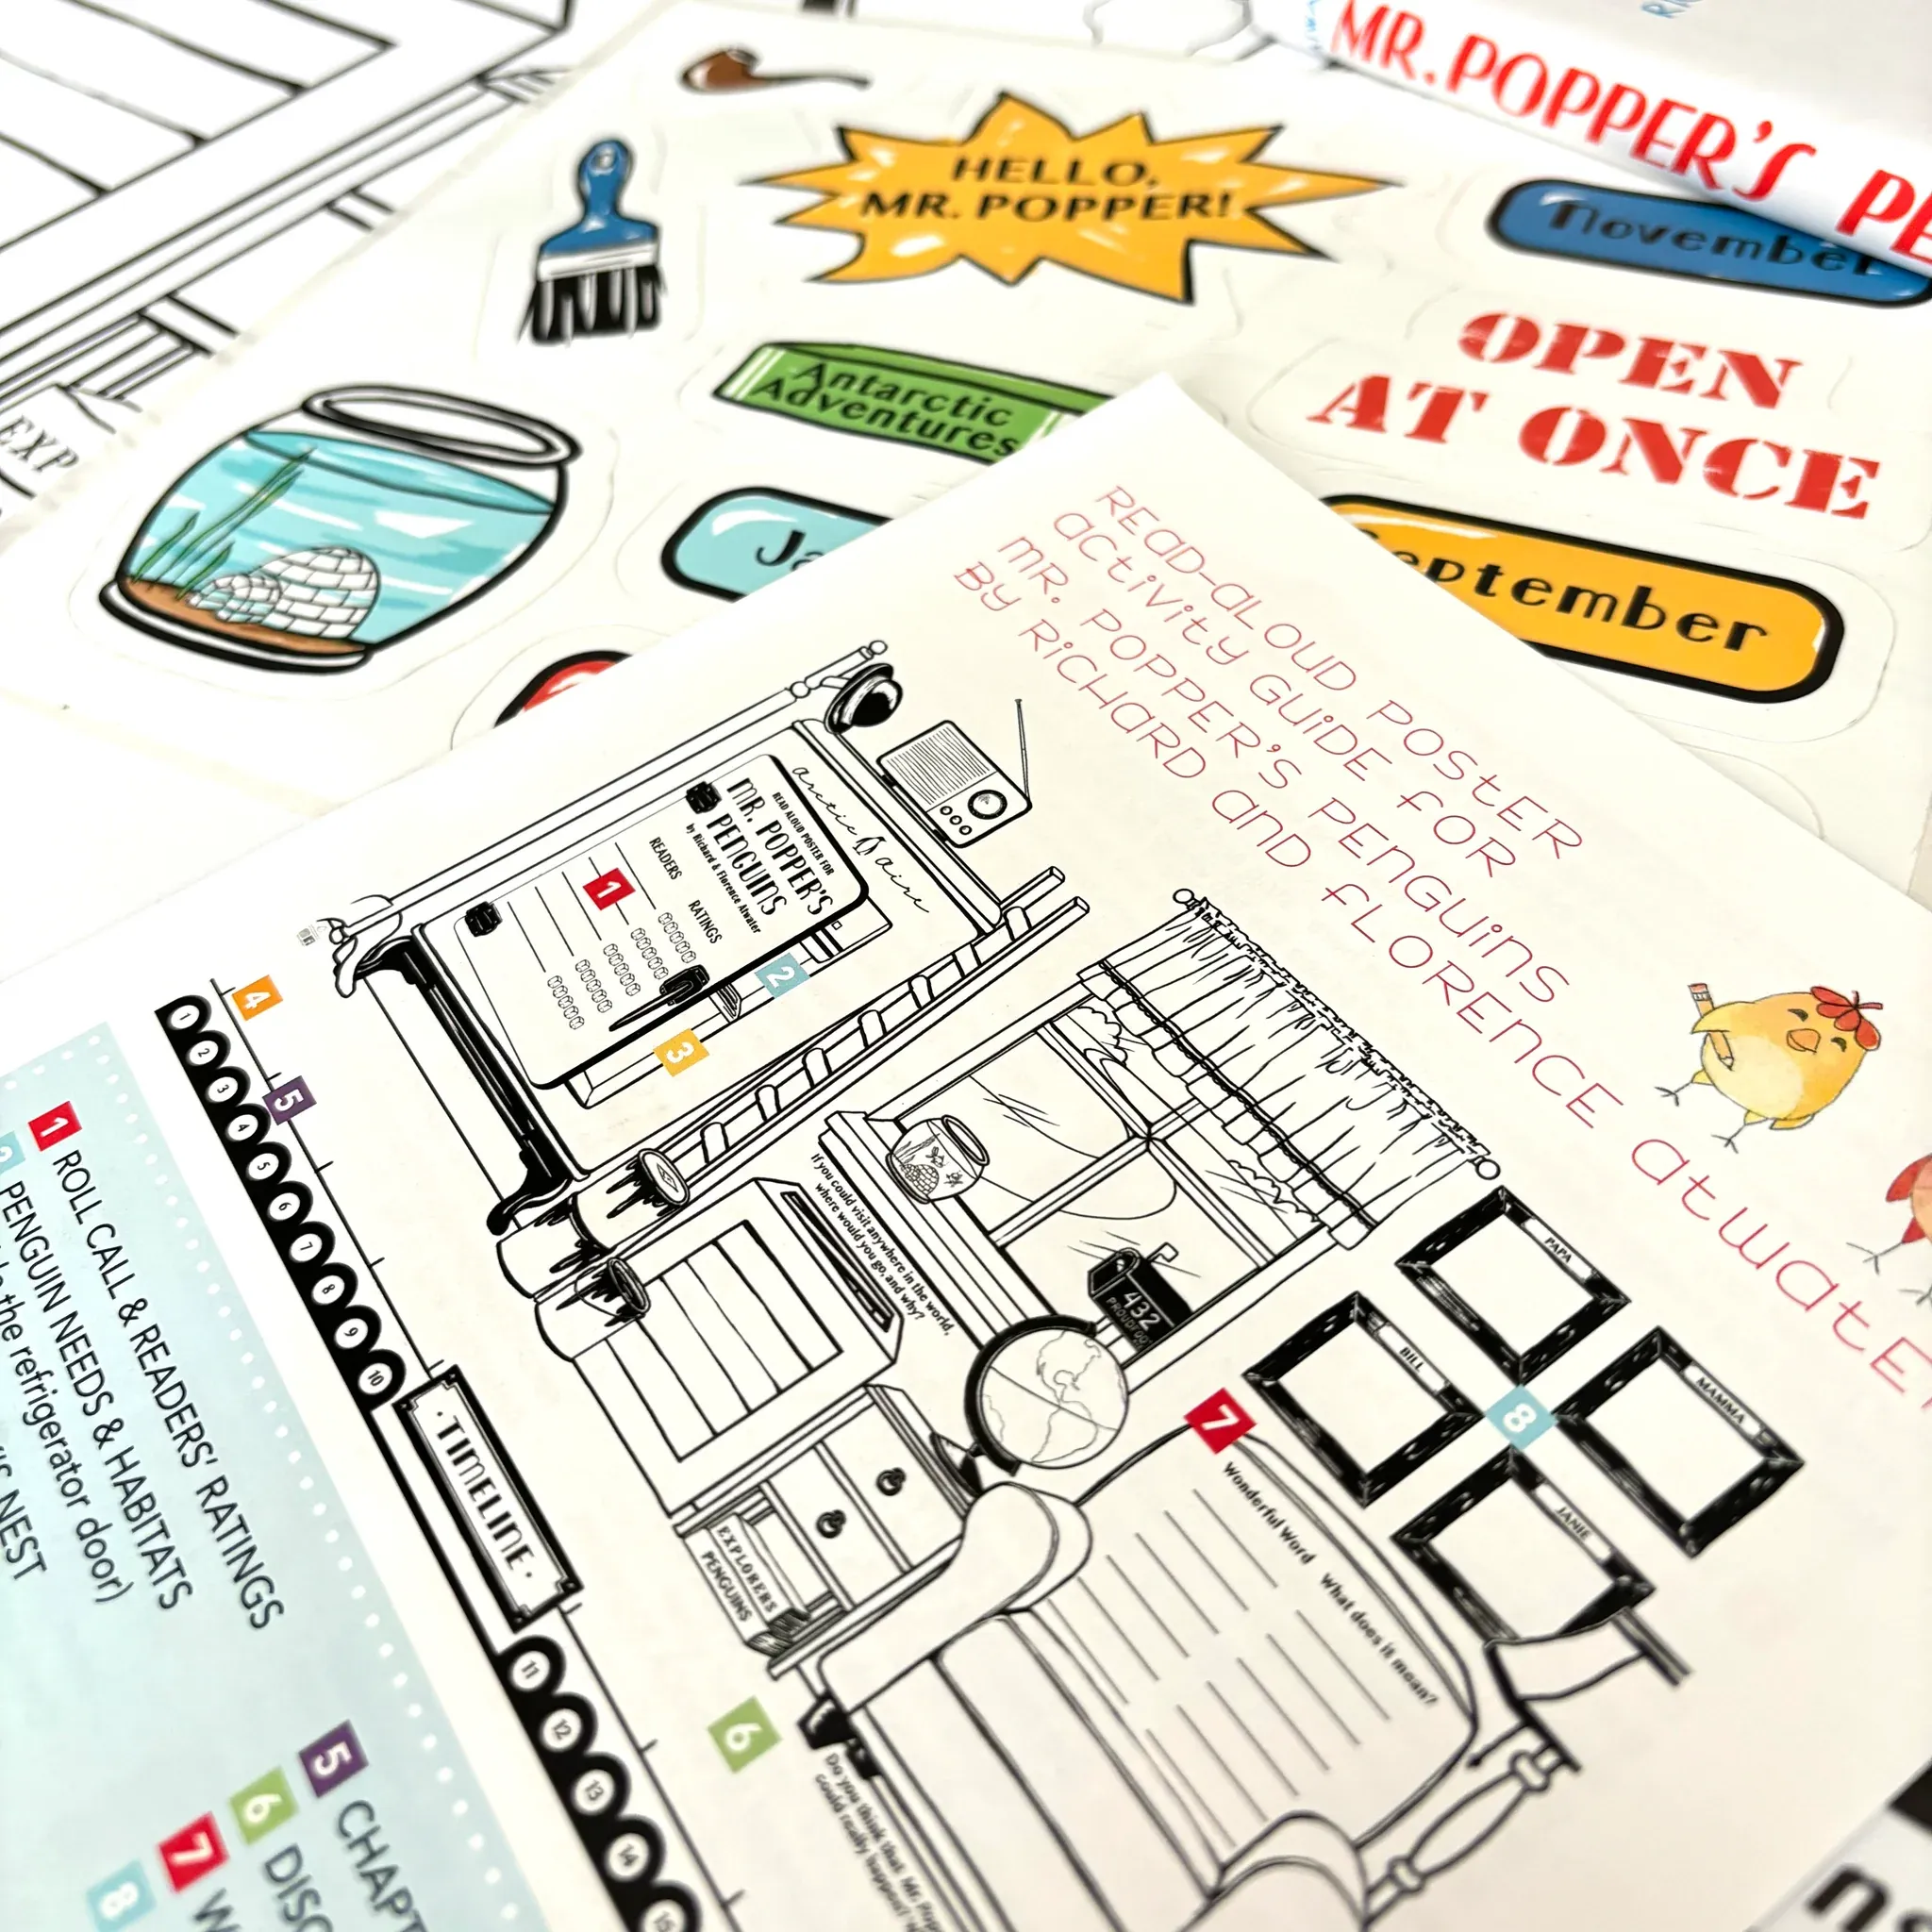 MR. POPPER'S
HELLO,
MR. POPPER!
November
OPEN
AT ONCE
Antarctic
Adventures
September
EXP
READ-ALOUD POSTER
ACTIVITY GUIDE FOR
MR. POPPER'S PENGUINS
BY RICHARD AND FLORENCE ATWATER
arctic aire
READ ALOUD POSTER FOR
MR. POPPER'S
PENGUINS
by Richard & Florence Atwater
READERS RATINGS
1
2
3
4
5
1 2 3 4 5 6 7 8 9 10
·TIMELINE·
11 12 13 14 15
If you could visit anywhere in the world,
where would you go, and why?
432
PROUDFOOT
EXPLORERS
PENGUINS
PAPA
BILL
MAMMA
JANIE
8
7
Wonderful Word What does it mean?
6
Do you think that Mr.
could really happen?
1 ROLL CALL & READERS' RATINGS
2 PENGUIN NEEDS & HABITATS
the refrigerator door)
NEST
5 CHAPT
6 DISC
7 W
8